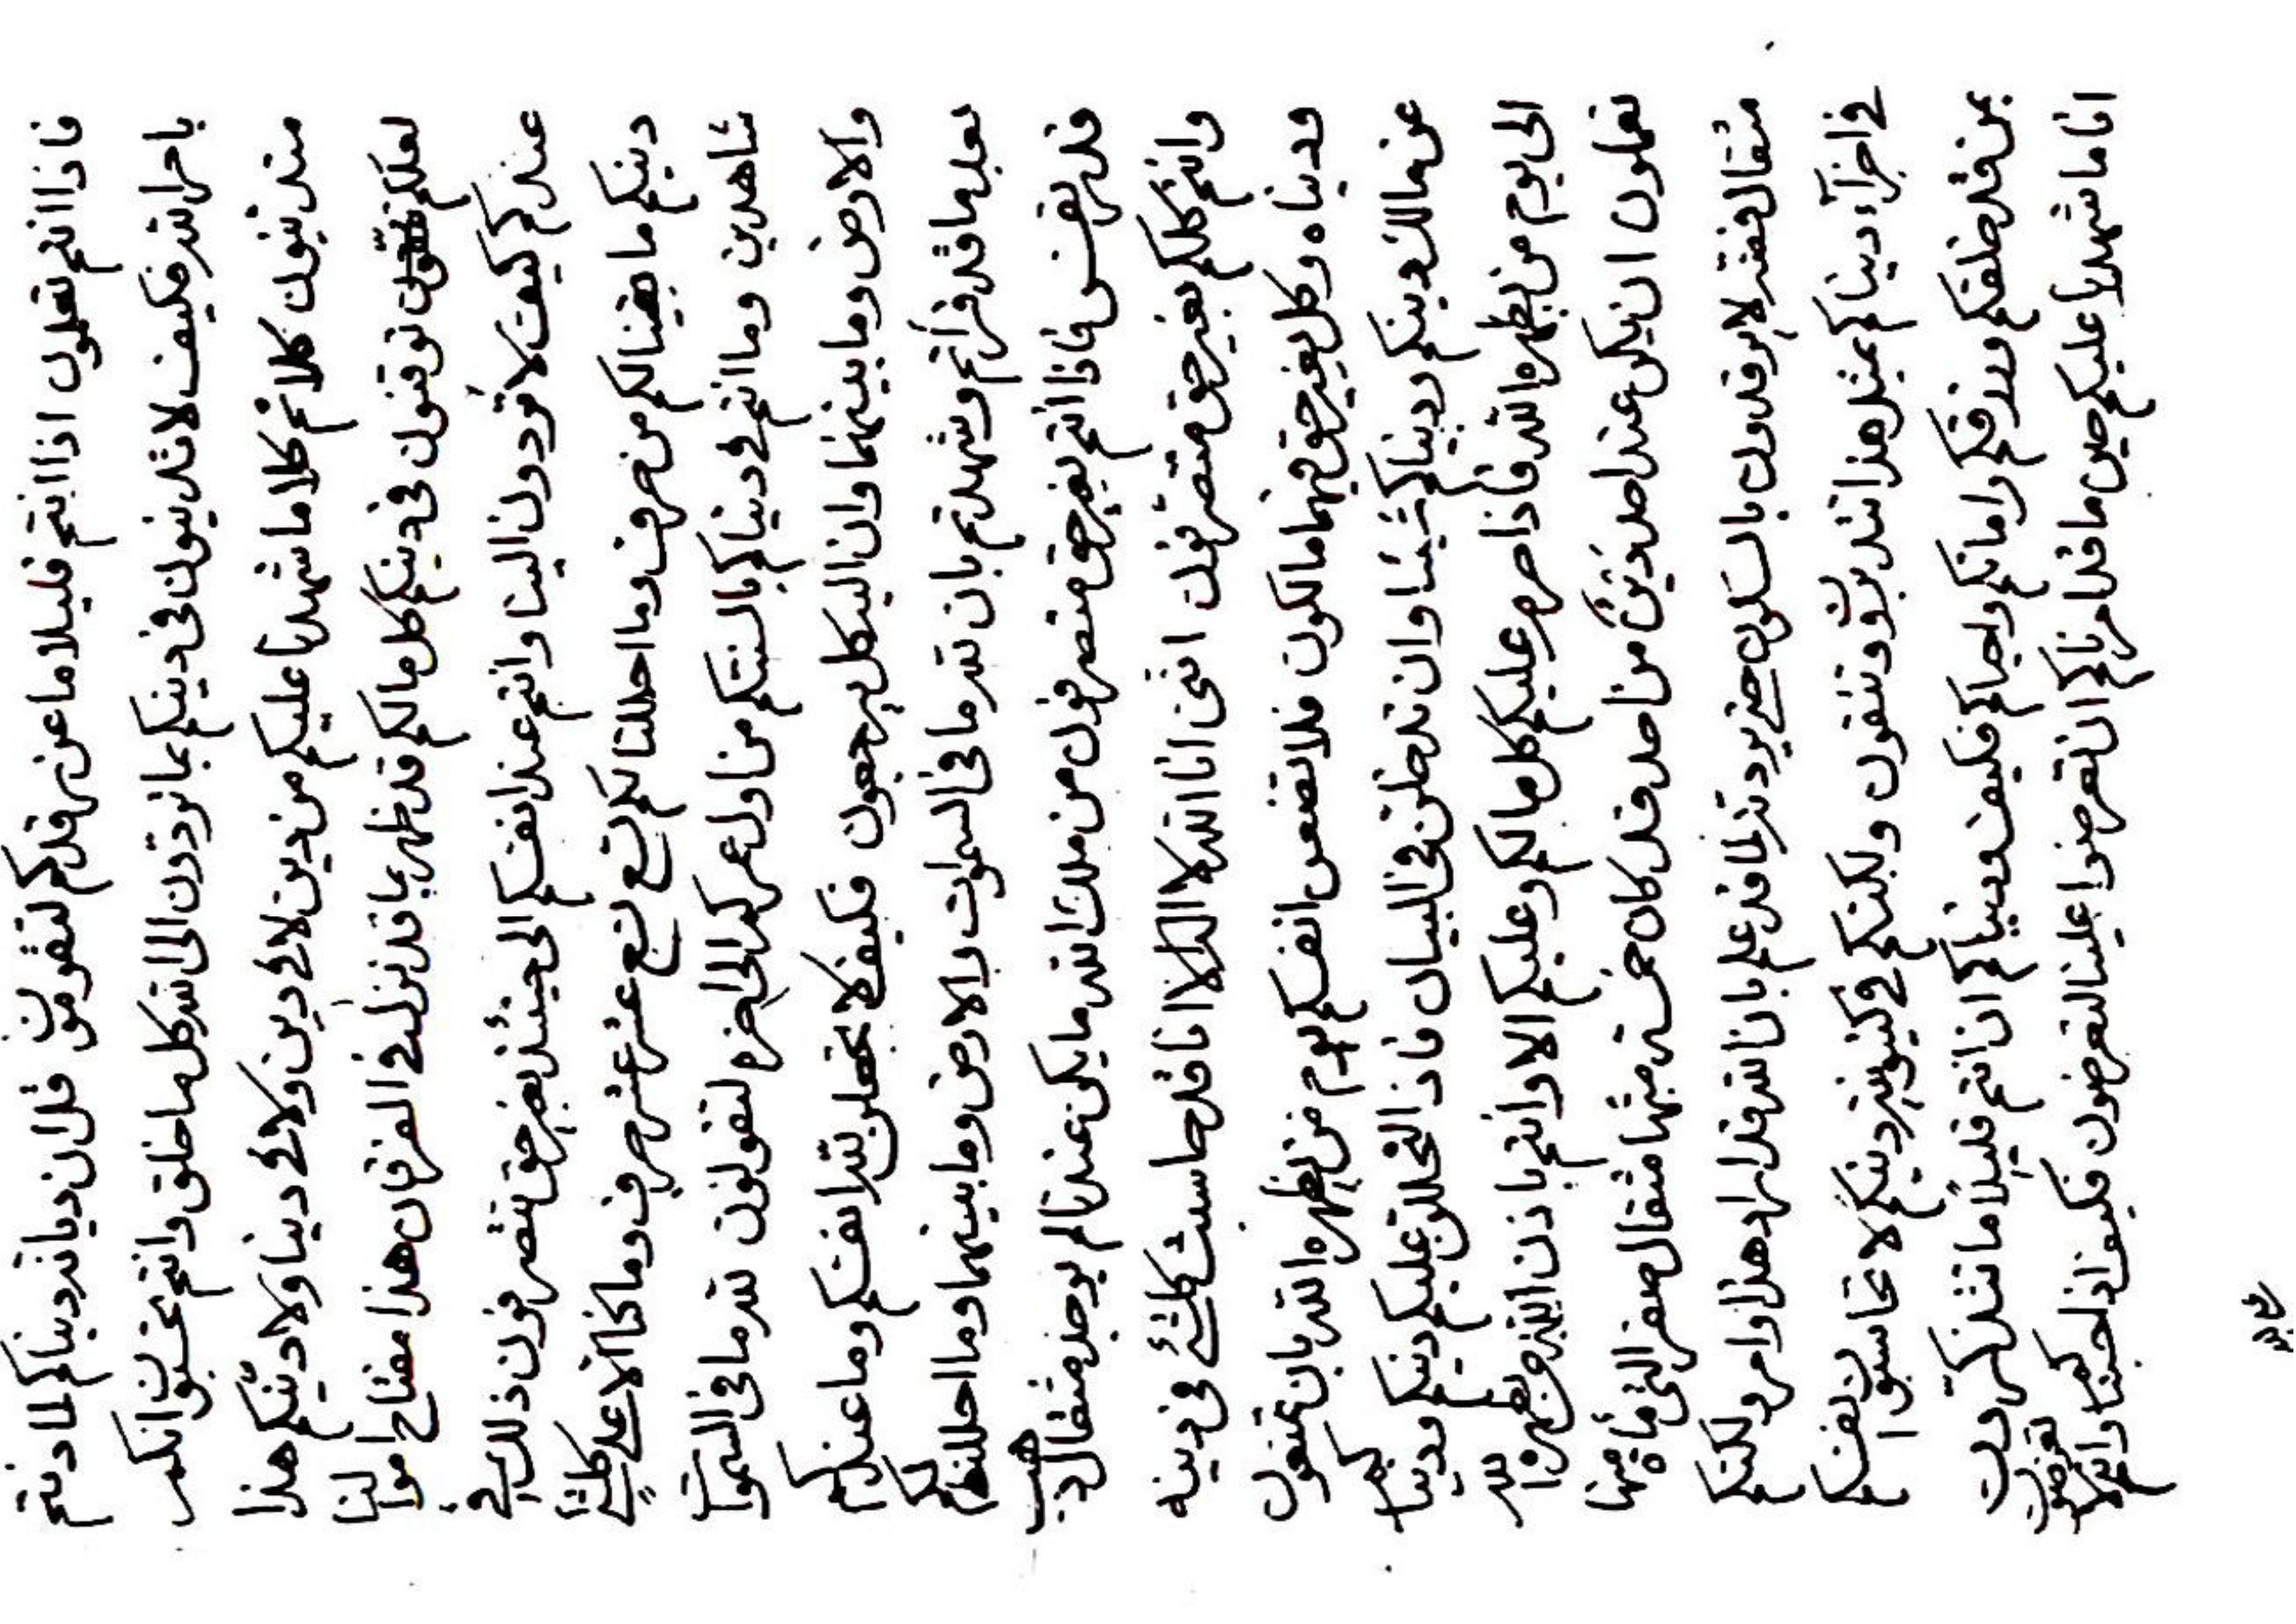 فاذا انتم تعلمون اذا انتم قليلا ما عن مرقدكم لتقومون قل ان ديانة ديناكم لما دنتم
باحد فكيف لا تدينون في دينكم بما تؤدون الى الله كل ما خلق وانتم تحسبون انكم
متدينون كلا ثم كلا ما شهدنا عليكم من دين لا في دين ولا في دينا ولا دينكم هذا
لعلكم توقنون في دينكم كل ما لكم قد ظهر بما قد نزل في الفرقان هذا مفتاح اموالنا
عندكم كيف لا تؤدون الينا وانتم عند انفسكم الى حينئذ بغير حق تتصرفون ذلك في
دينكم ما بقينا لكم من حرف وما احللنا لكم تسع تسع عشر عشر حرف وما كنا الا على كلشئ
شاهدين وما انتم في دنياكم بالسنتكم من اول عمركم الى اخره لتقولون لله ما في السموات
والارض وما بينهما وان اليه كل يرجعون فكيف لا تجعلن لله انفسكم وما عندكم
بعد ما قد قرأتم وشهدتم بان لله ما في السموات والارض وما بينهما وما احللنا لكم
قدر نفس فاذا انتم بغير حق متصرفون من ملك الله ما يكن عندنا لم يوجد مثقال ذهب
وانتم كلكم بغير حق متصرفون انني انا الله لا اله الا انا قد حاسبت كلشئ في دينه
ودنياه وكل بغير حق فيهما مالكون فلا تفضحن انفسكم يوم من يظهره الله بان تمنعون
عن مالك دينكم ودنياكم شيئا وان تدخلن في البيان فاذا لتحللن عليكم دينكم ودنياكم
الى يوم من يظهره الله فاذا حرم عليكم كل ما لكم وعليكم الا وانتم باذن الله من يظهره الله
تعملون ان يكن عند احد دين من احد قد كان خمسة مثقال صفر التي مأة منها
مثقال فضة لا يرقدون بالسكون حتى يرد لله لما قد علم بان الله قد اراد هذا وامر ولكنكم
في اجزاء ديناكم بمثل هذا لتدينون وتتقون ولكنكم في كينونية دينكم لا تحاسبون انفسكم
بمن قد خلقكم ورزقكم واماتكم واحياكم فكيف ودنياكم ان انتم قليلا ما تتذكرون
انا ما شهدنا عليكم حين ما قد امرناكم ان تقرضوا علينا لتقرضون فكيف اذ احببنا وانتم لا تقرضون